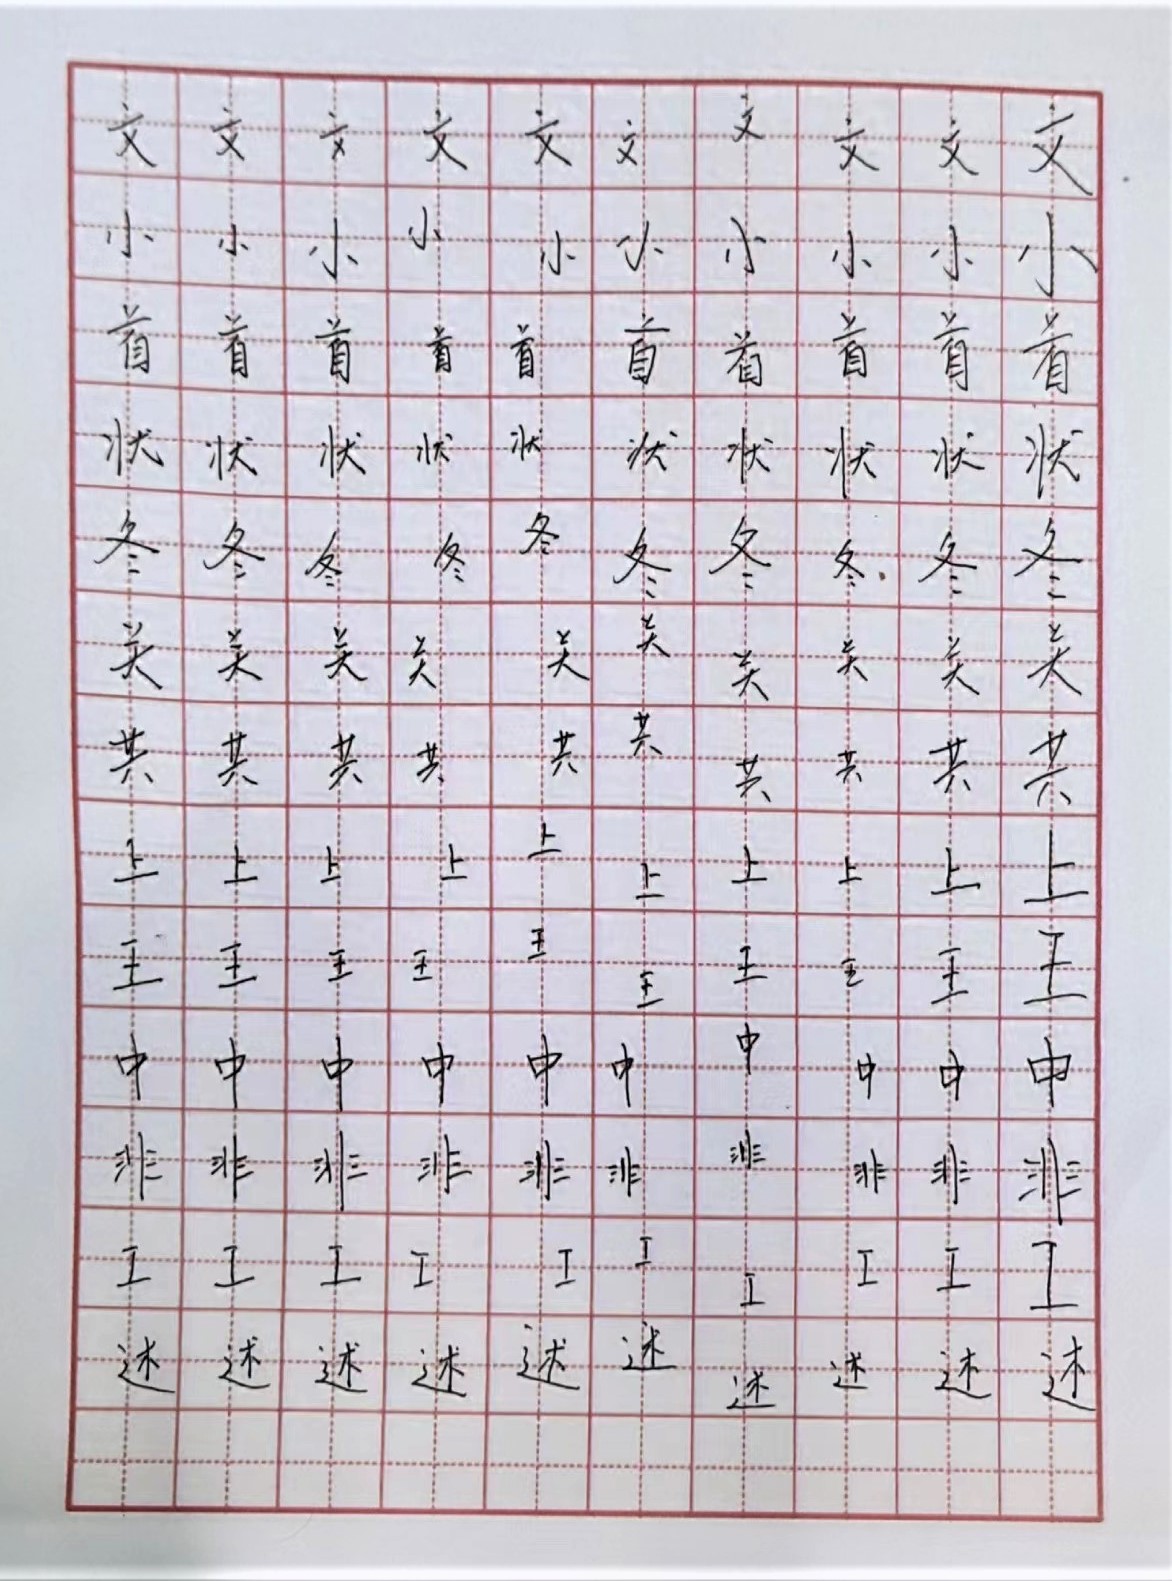 文文文文文文文文文文
小小小小小小小小小小
首首首首首首首首首首
状状状状状状状状状状
冬冬冬冬冬冬冬冬冬冬
关关关关关关关关关关
共共共共共共共共共共
上上上上上上上上上上
王王王王王王王王王王
中中中中中中中中中中
非非非非非非非非非非
工工工工工工工工工工
述述述述述述述述述述